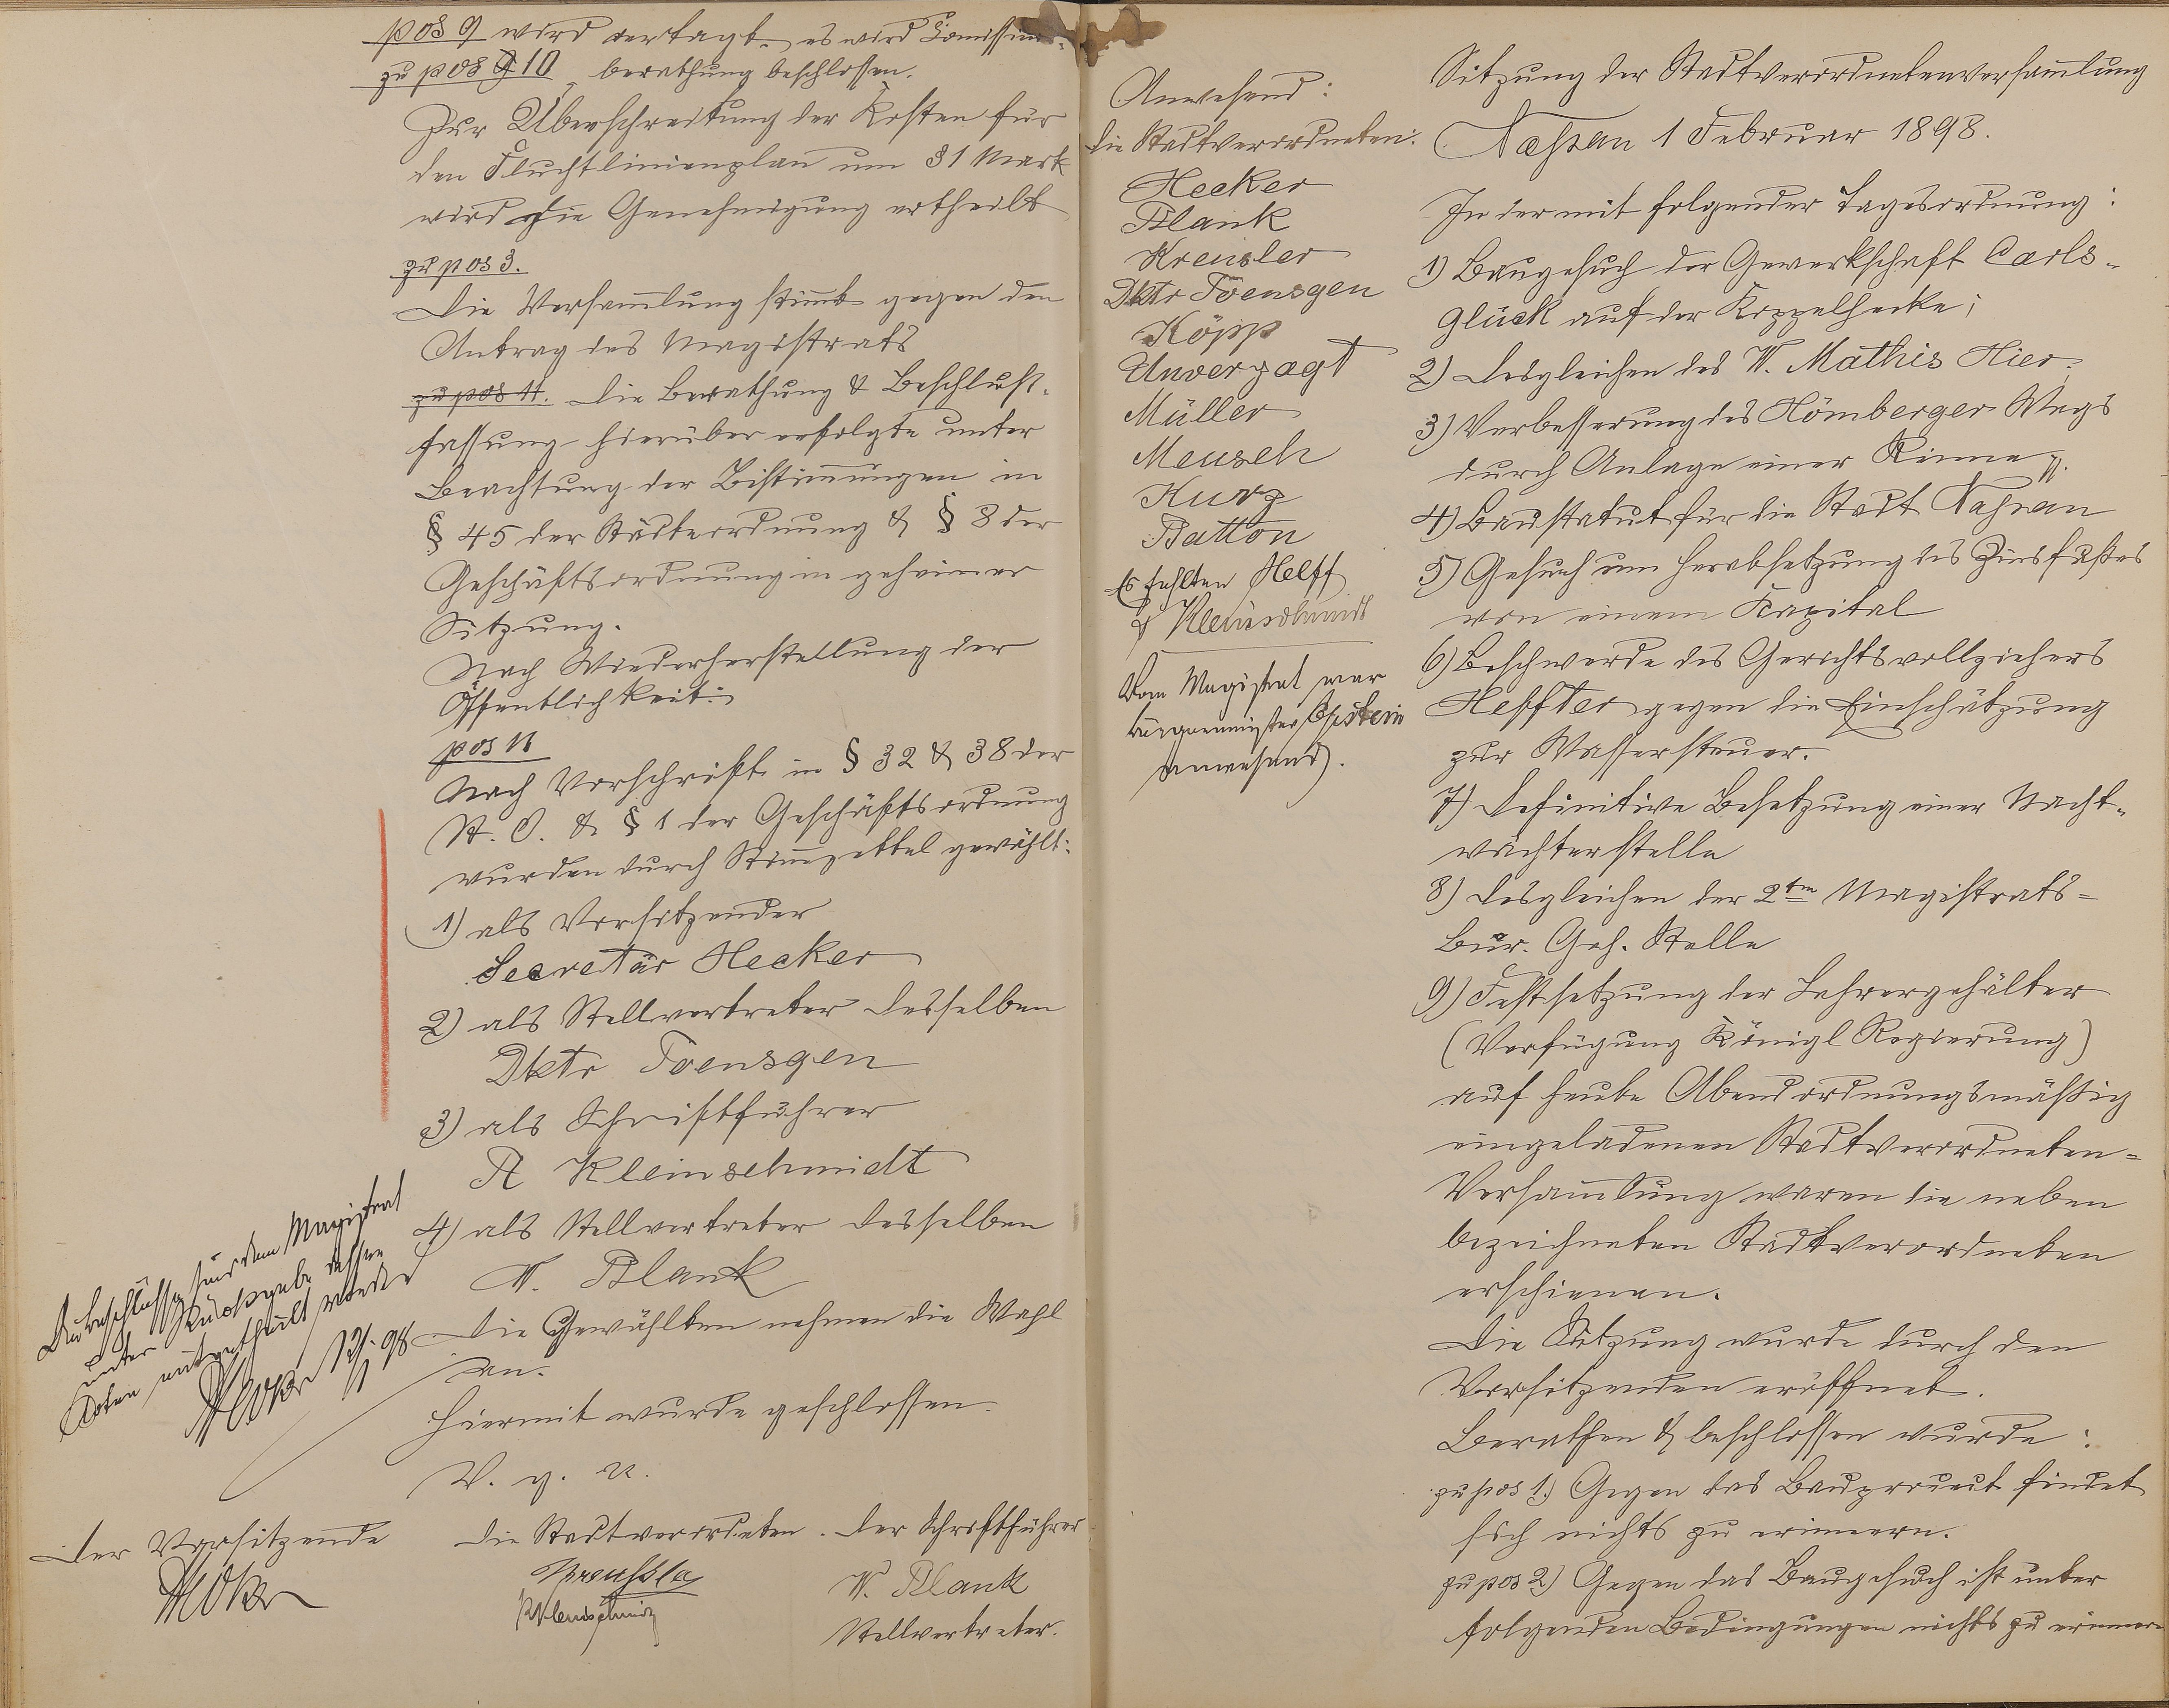 pos 9 wird vertagt. es wird Comissions-
zu pos 10 berathung beschlossen.
Zur Überschreitung der Kosten für
den Fluchtlinienplan um 31 Mark
wird die Genehmigung ertheilt
zu pos 3.
Die Versamlung stimt gegen den
Antrag des Magistrats
zu pos 11. Die Berathung & Beschluß-
fassung hierüber erfolgte unter
Beachtung der Bestimungen in
§ 45 der Städteordnung & § 8 der
Geschäftsordnung in geheimer
Sitzung.
Nach Wiederherstellung der
Öffentlichkeit:
pos
Nach Vorschrift in § 32 & 38 der
St. O. & § 1 der Geschäftsordnung
wurden durch Stimzettel gewählt:
1) als Vorsitzender
Secretär Hecker
2) als Stellvertreter desselben
Dktr Toensgen
3) als Schriftführer
A Kleinschmidt
4) als Stellvertreter desselben
W. Blank
Die Gewählten nehmen die Wahl
an.
Hiermit wurde geschlossen.
V. g. u.
Die Beschlüsse sind dem Magistrat
unter Rückgabe dessen
Acten mitgetheilt worden
Hecker 98
Der Vorsitzende
Hecker
Die Stadtverordneten.
Kreusler
Kleinschmidt
Der Schriftführer
W. Blank
Stellvertreter.
Anwesend:
die Stadtverordneten:
Hecker
Blank
Kreusler
Dktr Toensgen
Köpp
Unverzagt
Müller
Meusch
Kurz
Batton
Es fehlten Helff
& Kleinschmidt
Vom Magistrat war
Bürgermeister Epstein
anwesend.
Sitzung der Stadtverordnetenversamlung
Nassau 1 Februar 1898.
In der mit folgender Tagesordnung:
1) Baugesuch der Gewerkschaft Carls-
Glück auf der Koppelhecke;
2) Desgleichen des W. Mathis Hier.
3) Verbesserung des Hömberger Wegs
durch Anlage einer Rinne pp.
4) Baustatut für die Stadt Nassau
5) Gesuch um Herabsetzung des Zinsfußes
von einem Kapital
6) Beschwerde des Gerichtsvollziehers
Heffter gegen die Einschätzung
zur Wassersteuer.
7) Definitive Besetzung einer Nacht-
wächterstelle
8) Desgleichen der 2ten Magistrats-
Bür. Geh. Stelle
9) Festsetzung der Lehrergehälter
(Verfügung Königl Regierung)
auf heute Abend ordnungsmäßig
eingeladenen Stadtverordneten-
Versamlung waren die neben
bezeichneten Stadtverordneten
erschienen.
Die Sitzung wurde durch den
Vorsitzenden eröffnet.
Berathen & beschlossen wurde:
zu pos 1.) Gegen das Bauproject findet
sich nichts zu erinnern.
zu pos 2) Gegen das Baugesuch ist unter
folgenden Bedingungen nichts zu erinnern